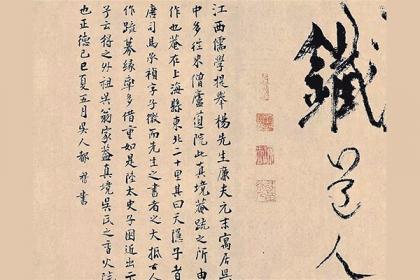 鐵道人
江西儒學提舉楊先生廉夫元末寓居吳
中多往来僧廬道院此真境菴疏之所由
作也菴在上海縣東北二十里其曰天隱子者
唐司馬承禎字子微而先生之書者之大抵古人
作疏募緣率多借重如是陸太史子囦出示
子云得之外祖吳翁家蓋真境吳氏之香火院
也正德己巳夏五月吳人都穆書